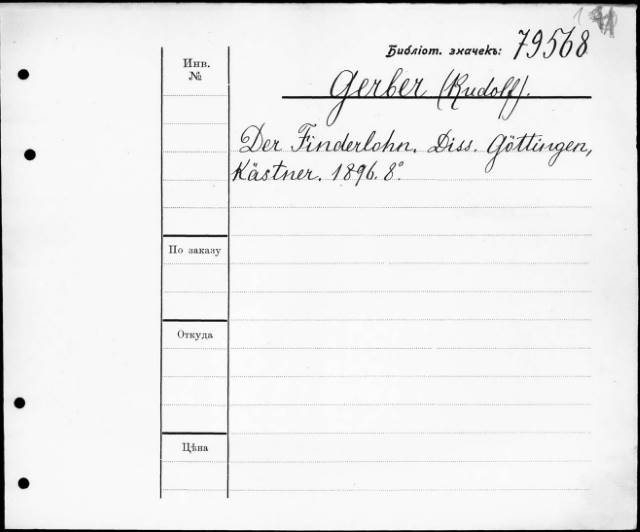 Библіот. значекъ: 79568
Инв.
№
Gerber (Rudolf).
Der Finderlohn. Diss. Göttingen,
Kästner. 1896. 8°.
По заказу
Откуда
Цѣна